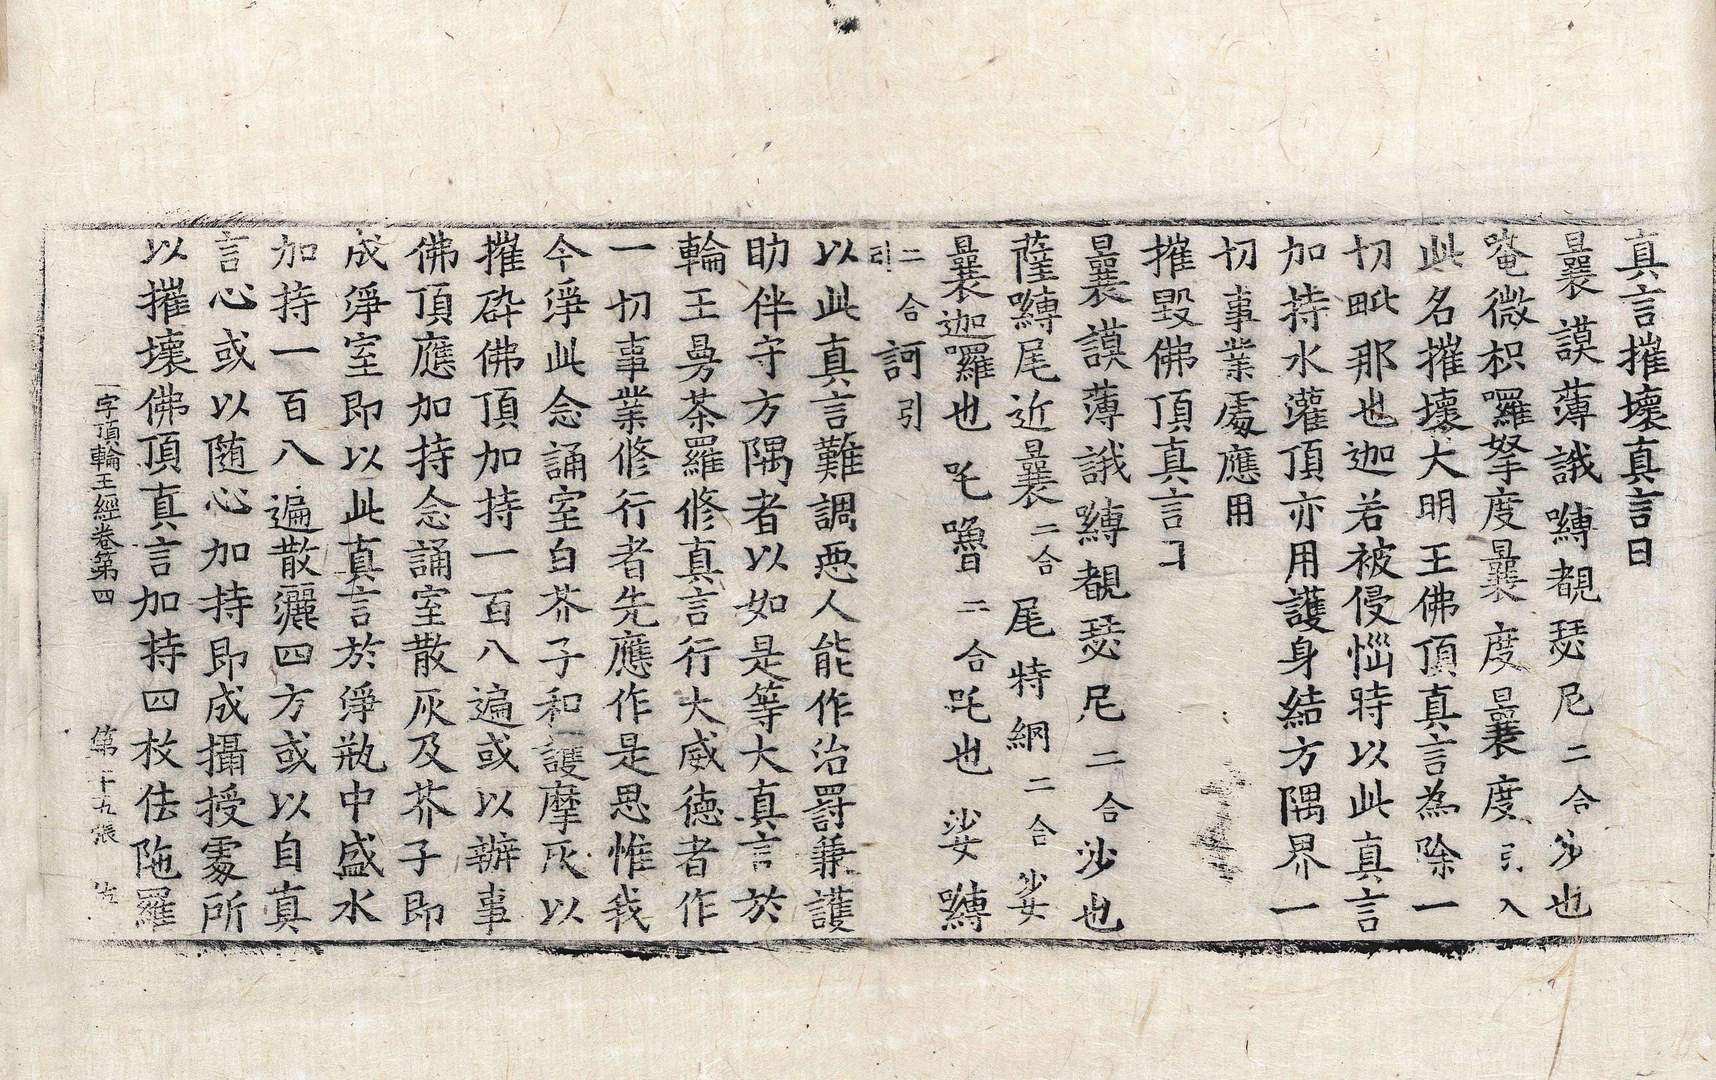 真言摧壞真言曰
曩謨薄誐嚩覩瑟尼二合沙也
唵微枳囉拏度曩度曩度引入
此名摧壞大明王佛頂真言為除一
切毗那也迦若被侵惱時以此真言
加持水灌頂亦用護身結方隅界一
切事業處應用
摧毀佛頂真言
曩謨薄誐嚩覩瑟尼二合沙也
薩嚩尾近曩二合尾特網二合娑
曩迦囉也吒嚕二合吒也娑嚩
二合引訶引
以此真言難調惡人能作治罸兼護
助伴守方隅者以如是等大真言於
輪王曼茶羅修真言行大威德者作
一切事業修行者先應作是思惟我
今淨此念誦室白芥子和護摩灰以
摧碎佛頂加持一百八遍或以辦事
佛頂應加持念誦室散灰及芥子即
成淨室即以此真言於淨瓶中盛水
加持一百八遍散灑四方或以自真
言心或以随心加持即成攝授處所
以摧壞佛頂真言加持四枚佉陁羅
一字頂輪王經卷第四 第十九張